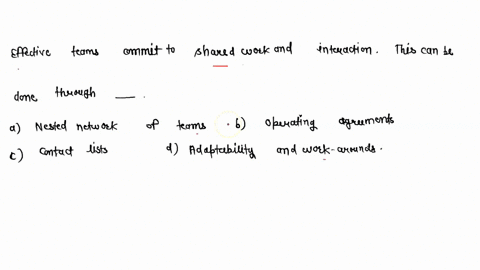 Effective teams commit to shared work and interaction. This can be
done through ___ .
a) Nested network of teams . b) Operating agreements
c) Contact lists d) Adaptability and work-arounds.